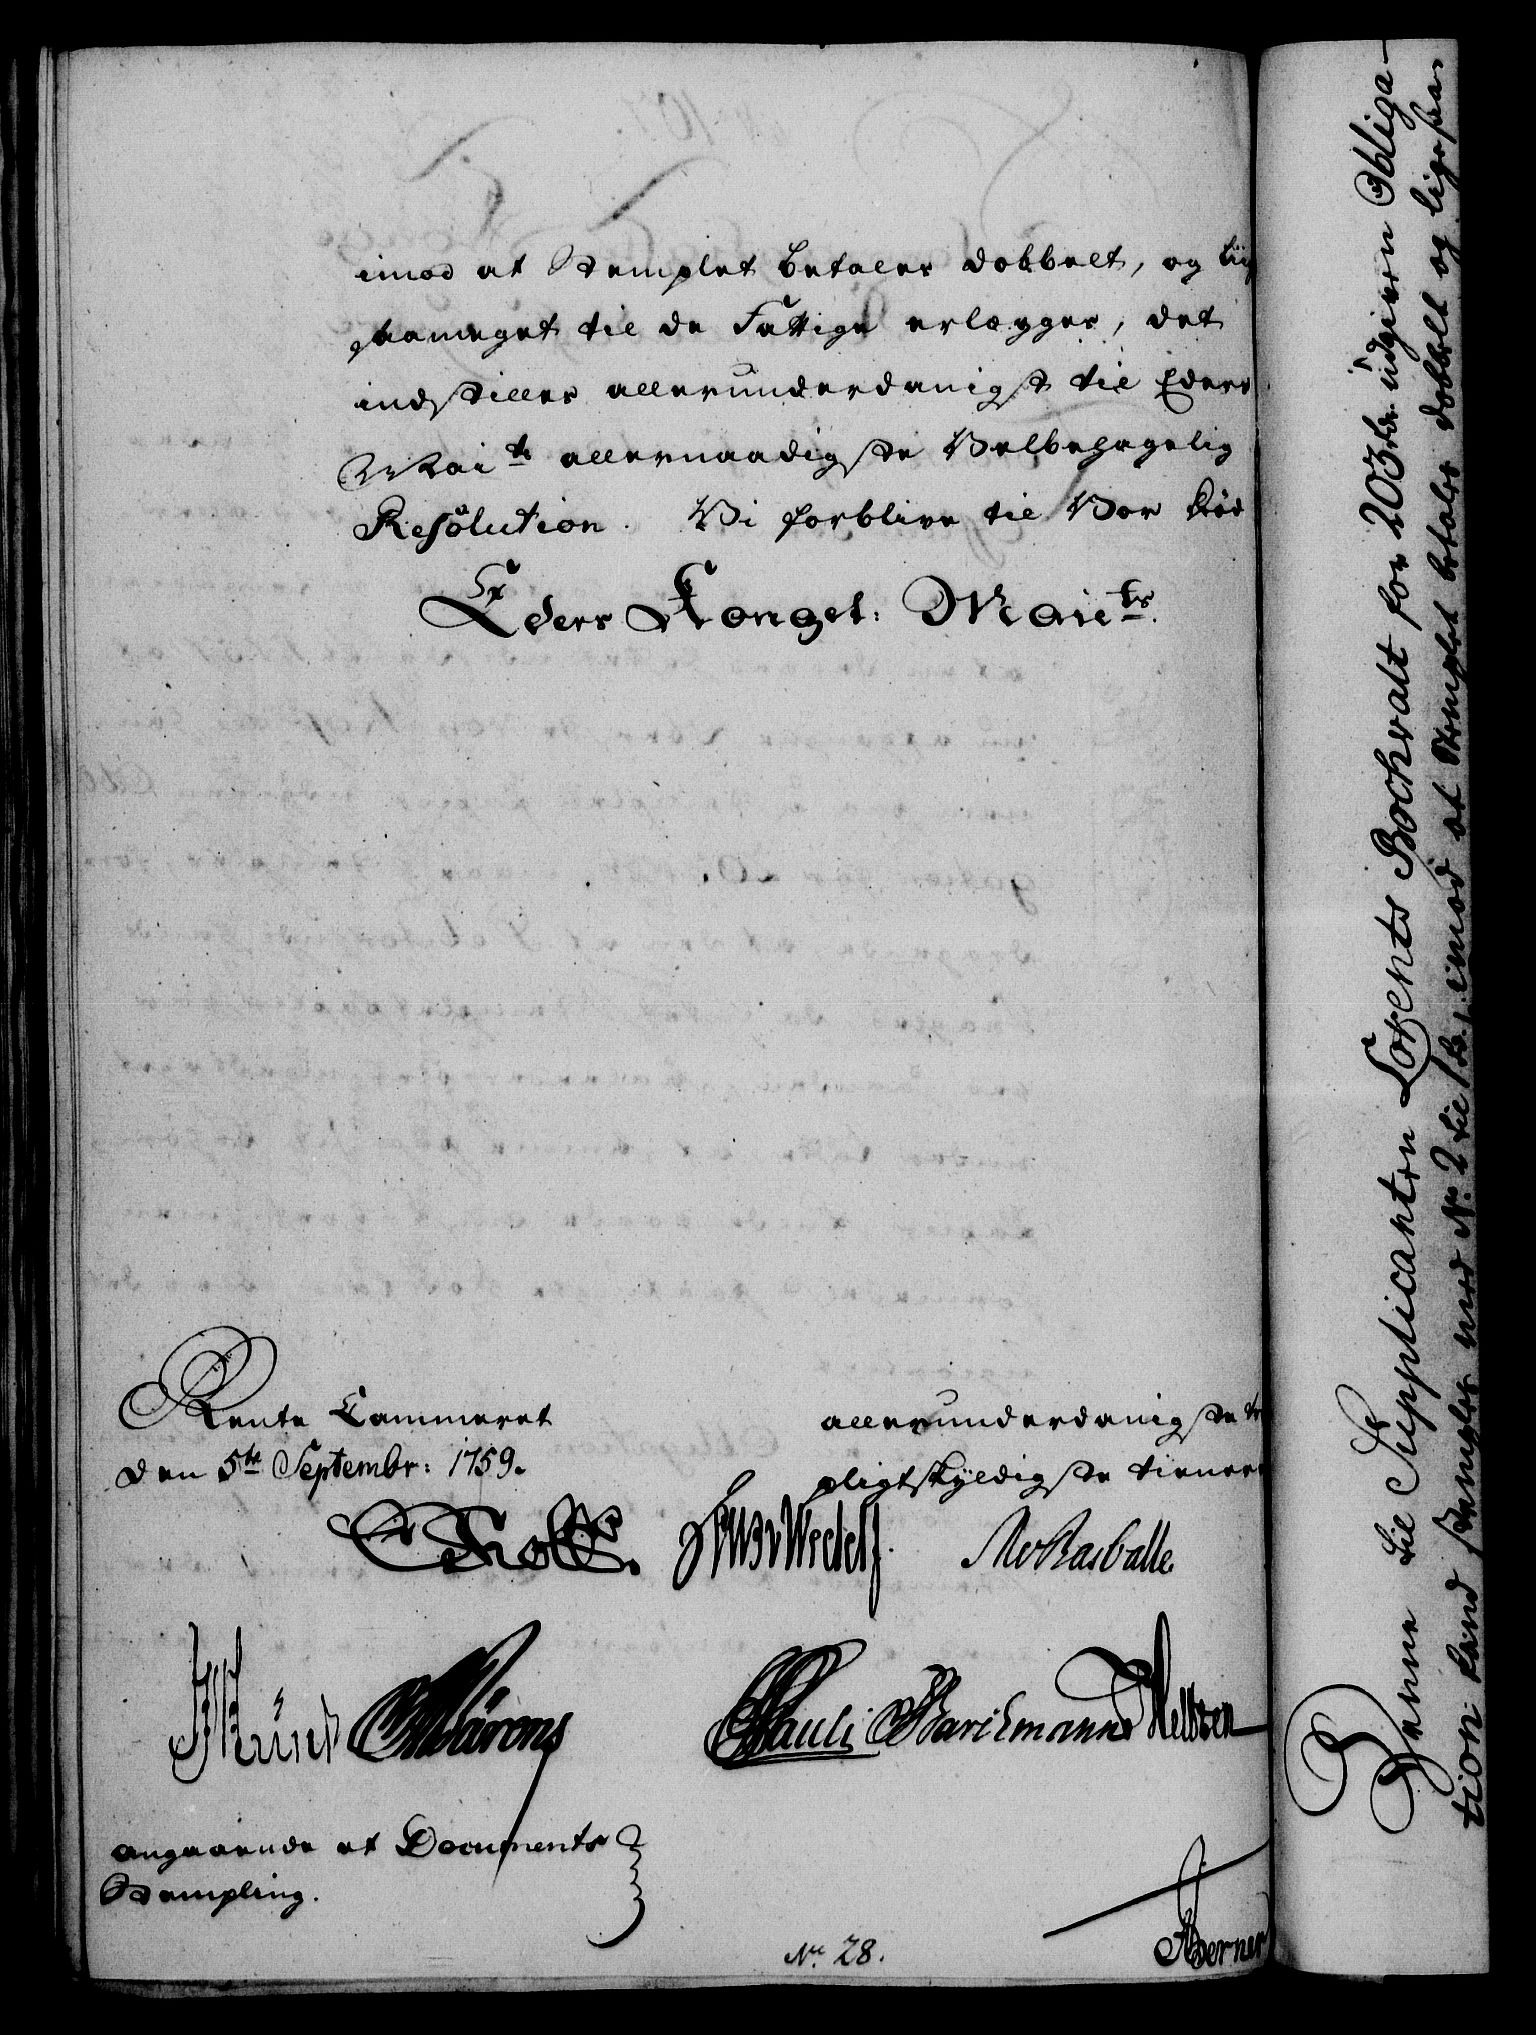 imod at Stemplet betales dobbelt, og lii
saameget til de Fattige erlægges, det
indstilles allerunderdanigst til Eders
Mai.ts allernaadigste Velbehagelig
Resolution. Vi forblive til Vor Død
Eders Kongel: Mai.ts
Rente Cammeret
den 5te Septembr: 1759.
allerunderdanigste
pligtskyldigste tienere
Holst.
Wedell.
Rasballe
Pauli
Barchmann
Heltzen
angaaende et Documents
Stempling.
No. 28.
Berner
Denne til Supplicanten Lorents Bochvalt for 203 rdr. udgiven Obliga-
tion kand stemples med No. 2 til / Rd., imod at Stemplet betales dobbelt og ligesaa